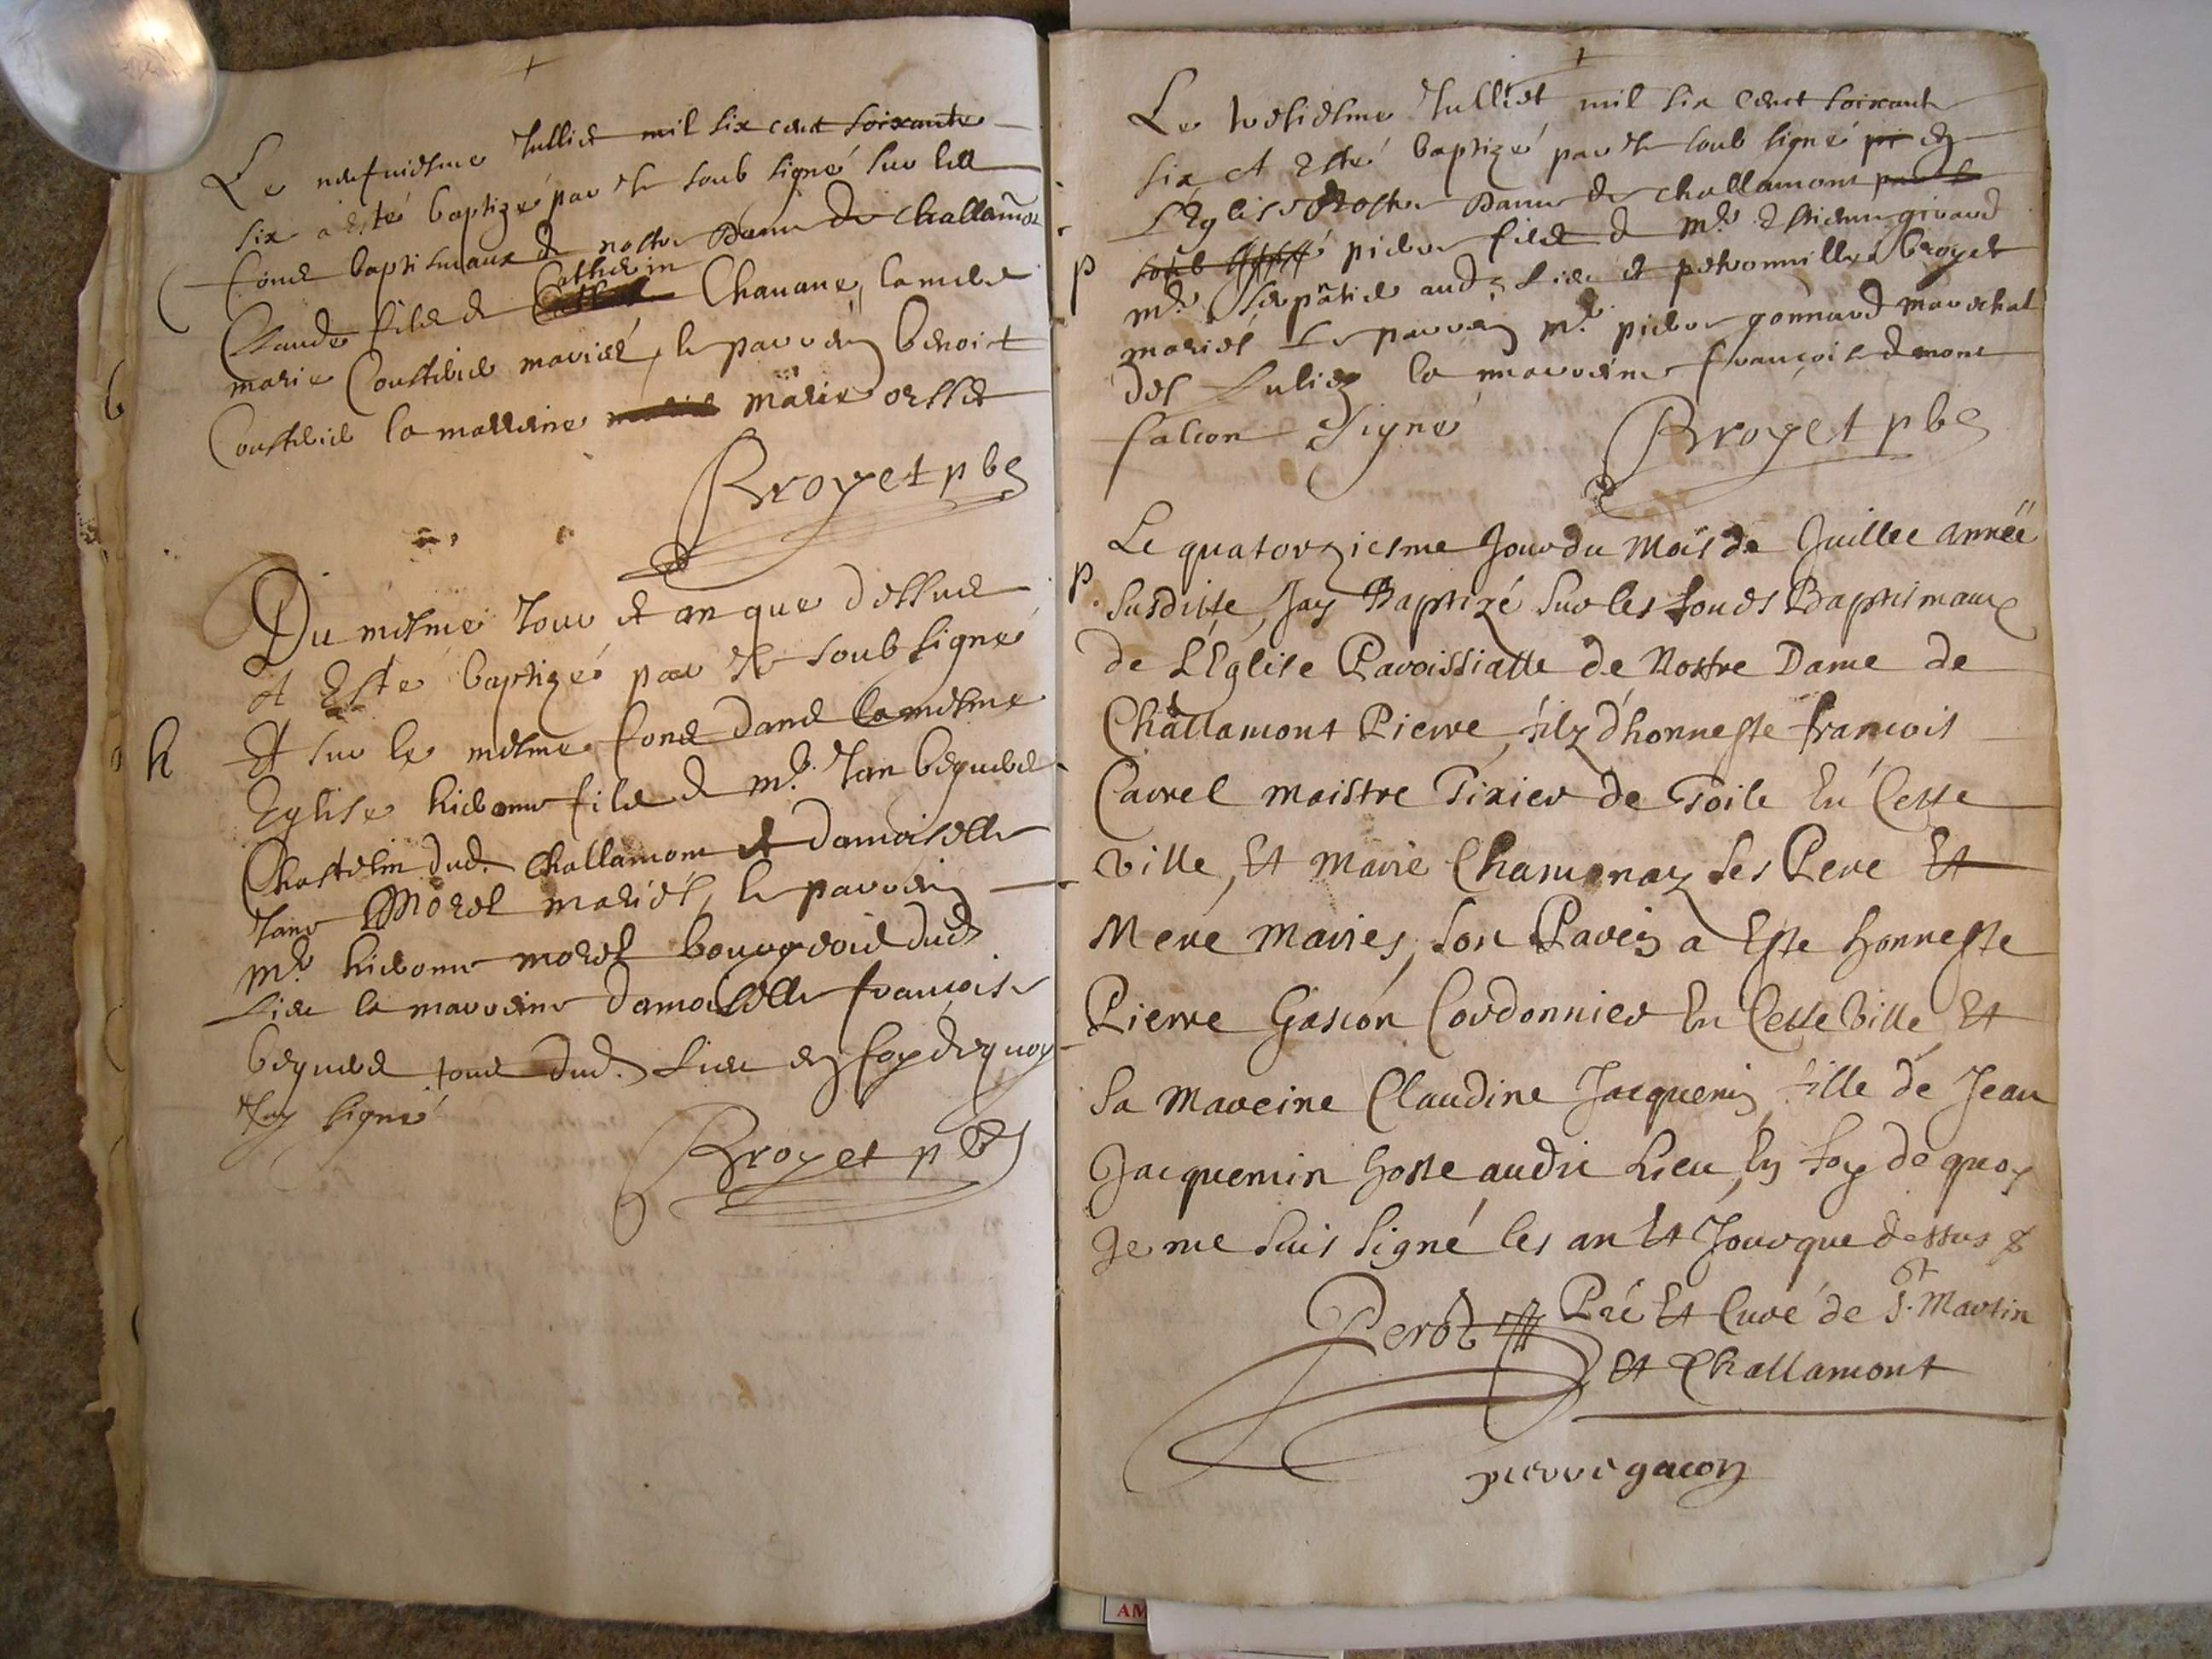 Le neufviesme Jullier mil six cent soixante
six a esté baptizé par Je soub signé sur les
fons baptismaux de nostre Dame de challamon
Claude fils de Catherin Chanane, la mere
marie Cousturier mariés, le parrein benoict
Cousturier la marreine marie
Broyet pbr
Du mesme Jour et an que dessus
A Esté baptizé par Je soub signé
Et sur le mesme fons dans la mesme
Eglise hierome fils de mr. Jan
Chastelin dud. Challamon et damoiselle
Jane Morel mariés, le parrein
mr. hierome morel bourgeois dud.
Lieu la marreine damoiselle françoise
tous dud. Lieu en foy de quoy
Jay signé
h
Broyet pbr
Le tresiesme Julliet mil six cent soixante
six A Esté baptizé par Je soub signé en
L'Eglise Nostre Dame de challamont
p
pierre fils de mr. Estienne girard
mr. aud. Lieu et petronnille broyet
mariés Le parrein mr. pierre gonnard mareschal
des Lulier la marreine françoise de mont
falcon Signé
Broyet pbr
Le quatorziesme Jour du Mois de Juillet année
p
Susditte, Jay Baptizé sur les fonds Baptismaux
de L'Eglise Paroissialle de Nostre Dame de
Challamont Pierre, filz d'honneste francois
Carrel maistre Tixier de Toile En Cette
ville, Et Marie Chamonaz ses Pere Et
Mere Mariés, son Parein a Este honneste
Pierre Gascon Cordonnier En Cette Ville Et
Sa Mareine Claudine Jacquemin, fille de Jean
Jacquemin hoste audit Lieu, En foy de quoy
Je me suis signé les an Et Jour que dessus
Perot Pré Et Curé de St. Martin
Et Challamont
pierre gacon
AM